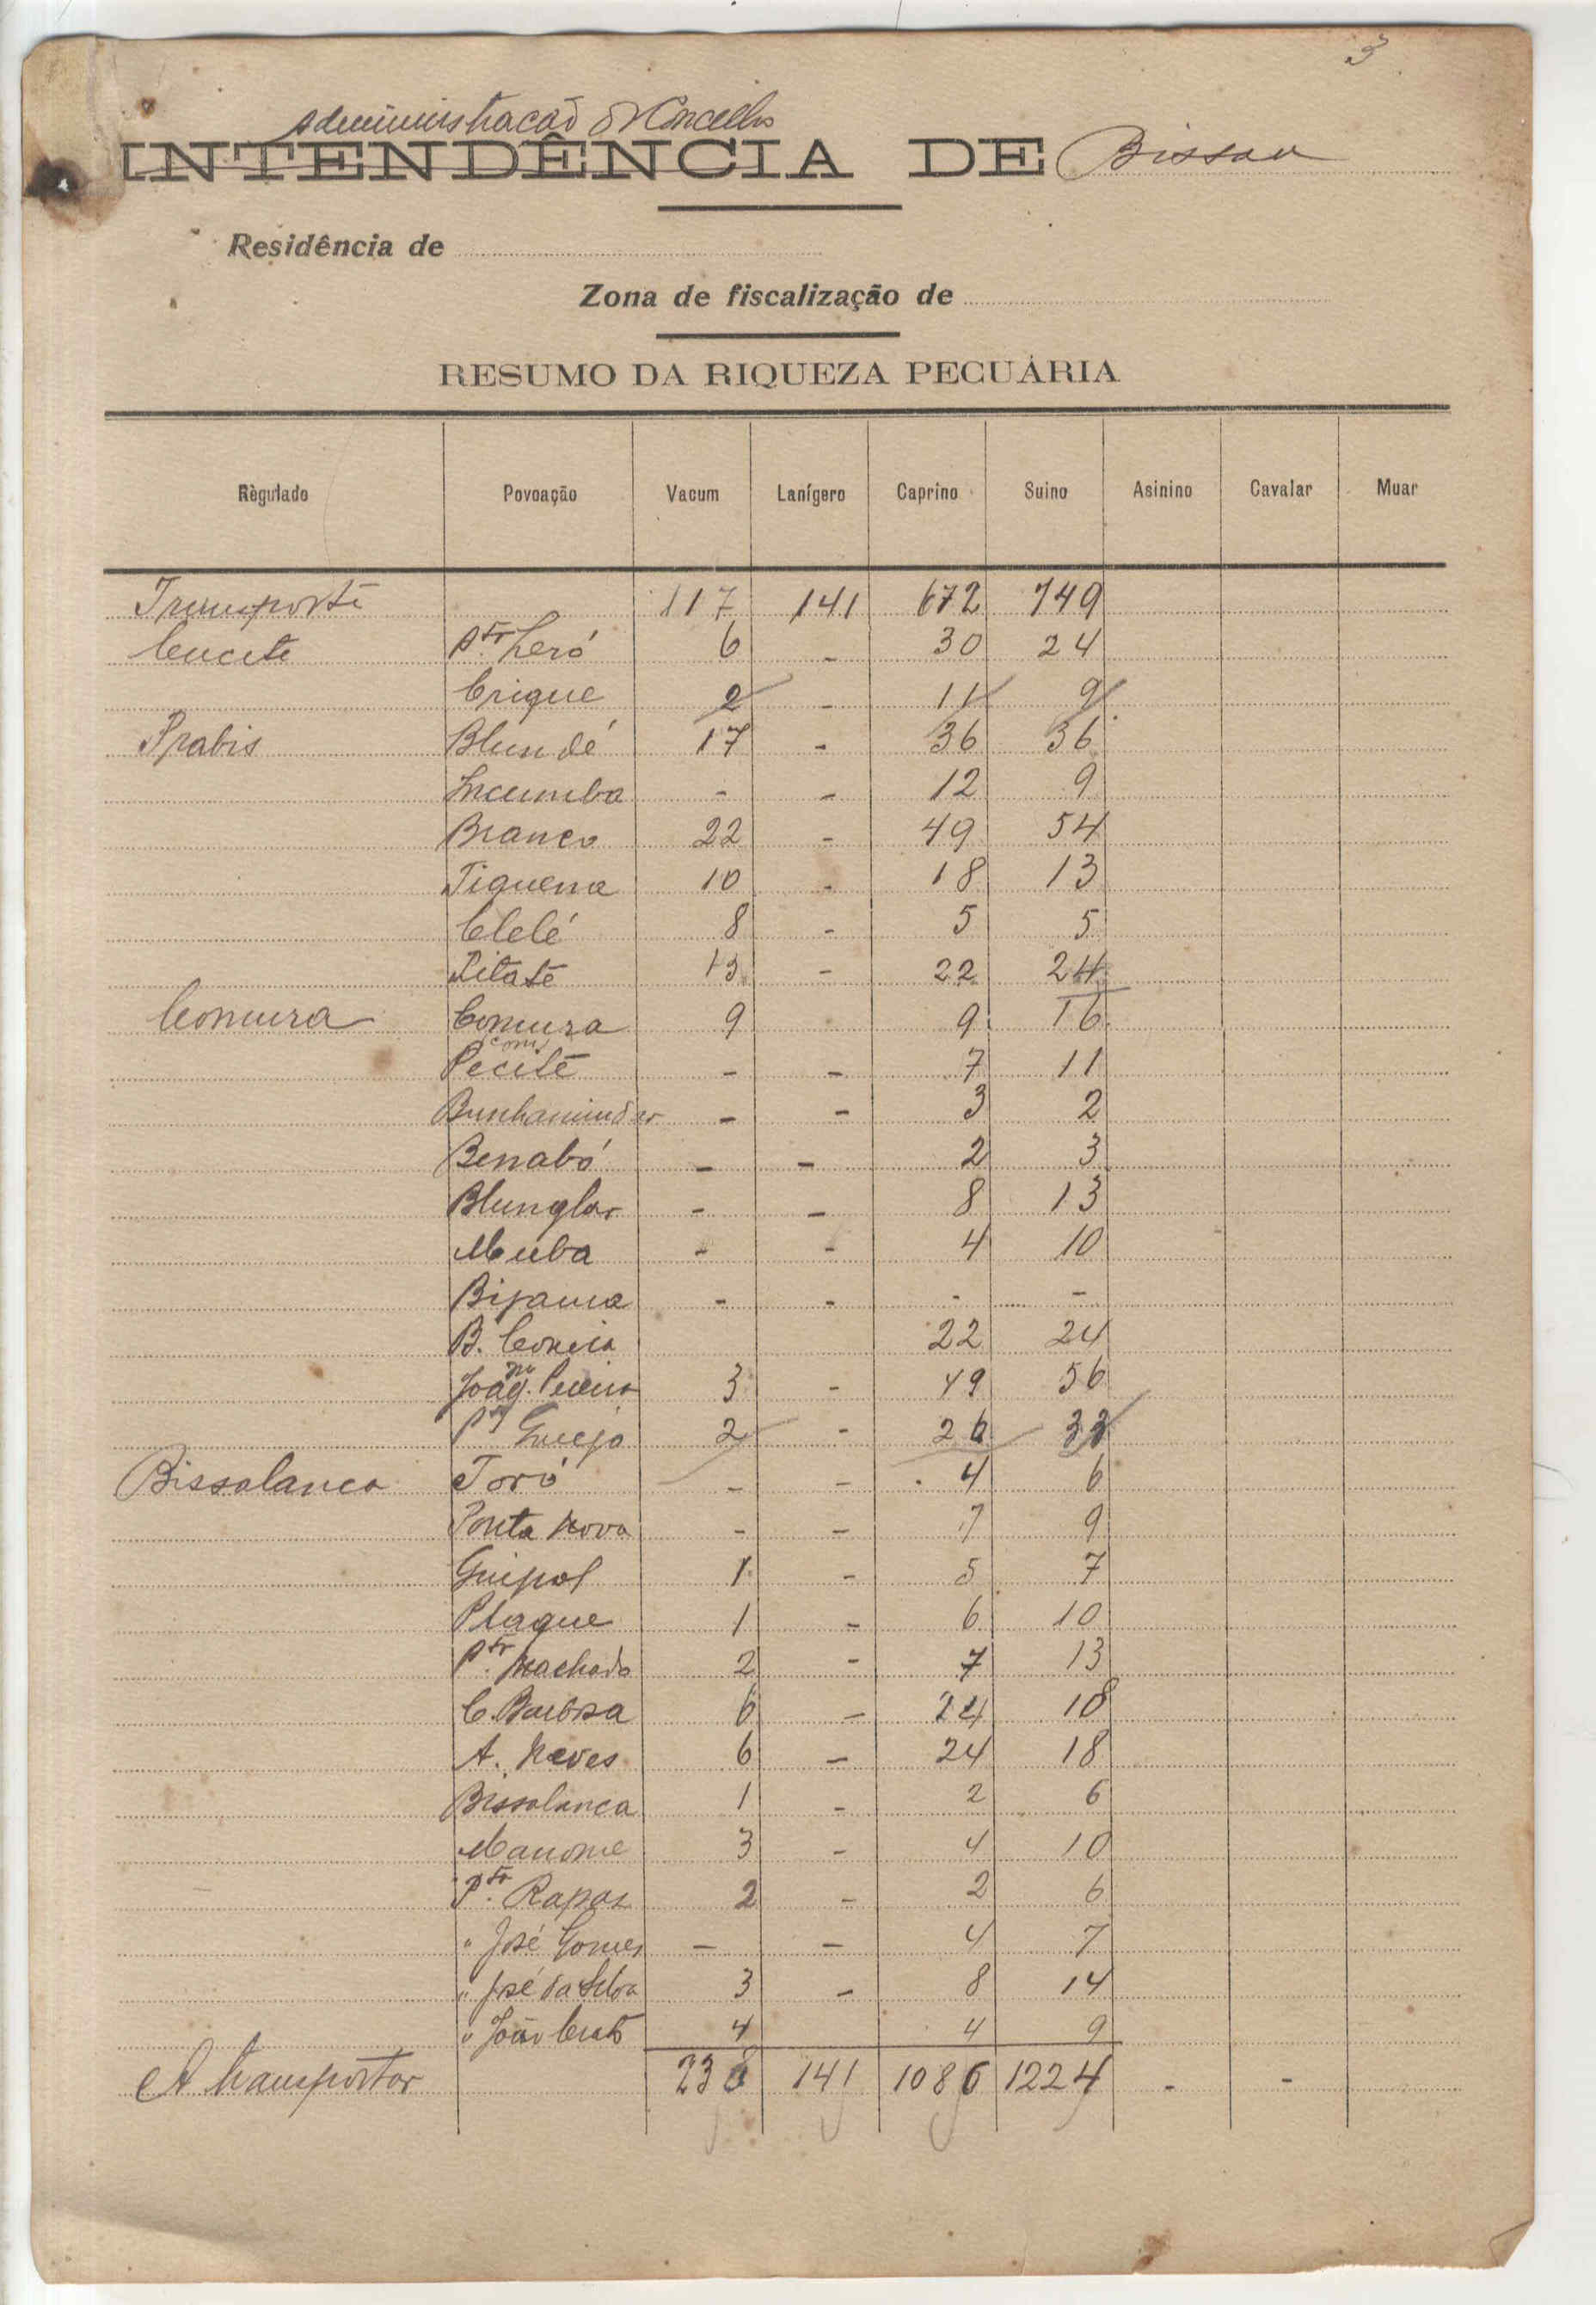 3
Administração do Concelho
INTENDÊNCIA DE Bissau
Residência de
Zona de fiscalização de
RESUMO DA RIQUEZA PECUÁRIA
Règulado Povoação Vacum Lanígero Caprino Suino Asinino Cavalar Muar
Transporte 117 141 672 749
Cucete Pta. Leró 6 - 30 24
Crique 2 - 11 9
Prabis Blundé 17 - 36 36
Incumba - - 12 9
Branco 22 - 49 54
Tiguena 10 - 18 13
Clelé 8 - 5 5
Pitate 13 - 22 24
Comura Comura 9 9 16
Pecite - - 7 11
- - 3 2
Benabó - - 2 3
Blunglar - - 8 13
Muba - - 4 10
Bijama - - - -
B. Correia 22 24
Joaqm. Pereira 3 - 49 56
2 - 26
Bissalanca Toró - - 4 6
Ponta Nova - - 7 9
Guipal 1 - 5 7
Plaque 1 - 6 10
Pta. Machado 2 - 7 13
C. Barbosa 6 - 24 18
A. Neves 6 - 24 18
Bissalanca 1 - 2 6
Manome 3 - 4 10
Pta. Rapaz 2 - 2 6
" José Gomes - - 4 7
" José da Silva 3 - 8 14
" João 4 4 9
A transportar 238 141 1086 1224 - -